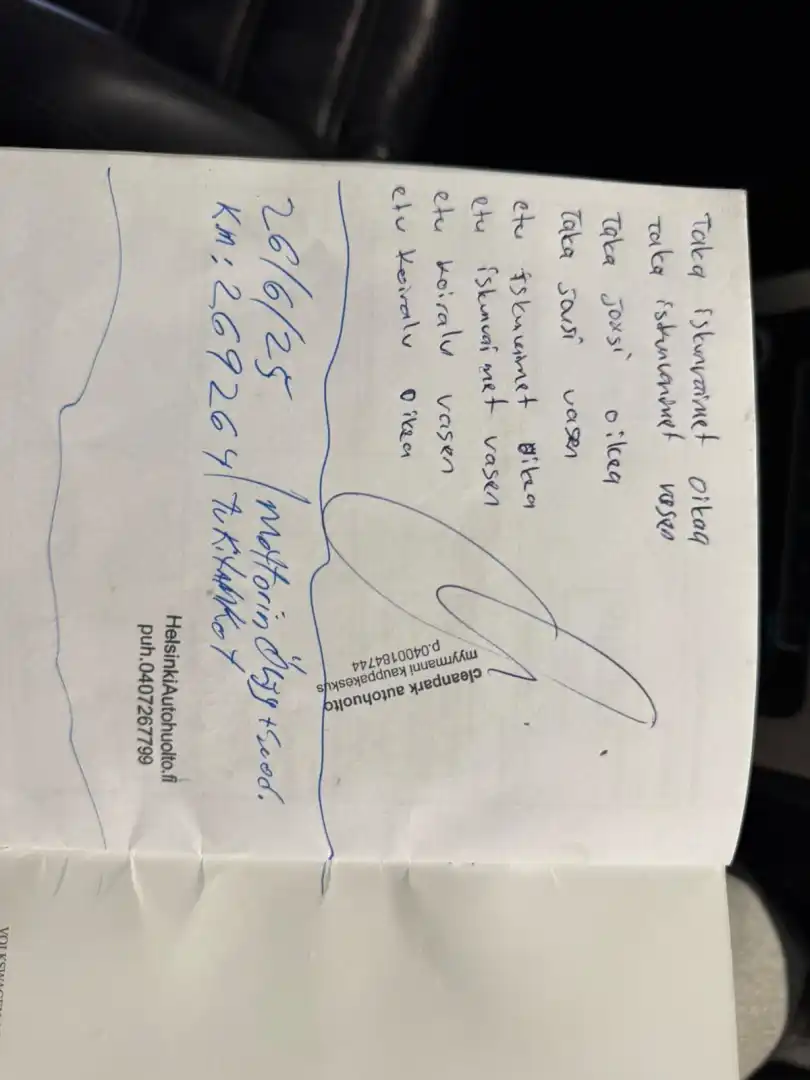 Taka iskunvaimet oikea
Taka iskunvaimet vasen
Taka jousi oikea
Taka jousi vasen
etu iskunvaimet oikea
etu iskunvaimet vasen
etu koiralu vasen
etu koiralu oikea
cleanpark autohuolto
myyrmanni kauppakeskus
p.0400184744
26/6/25 / Mottorin Öljy + Suod.
KM: 269264
HelsinkiAutohuolto.fi
puh.0407267799
VOLKSWAGEN